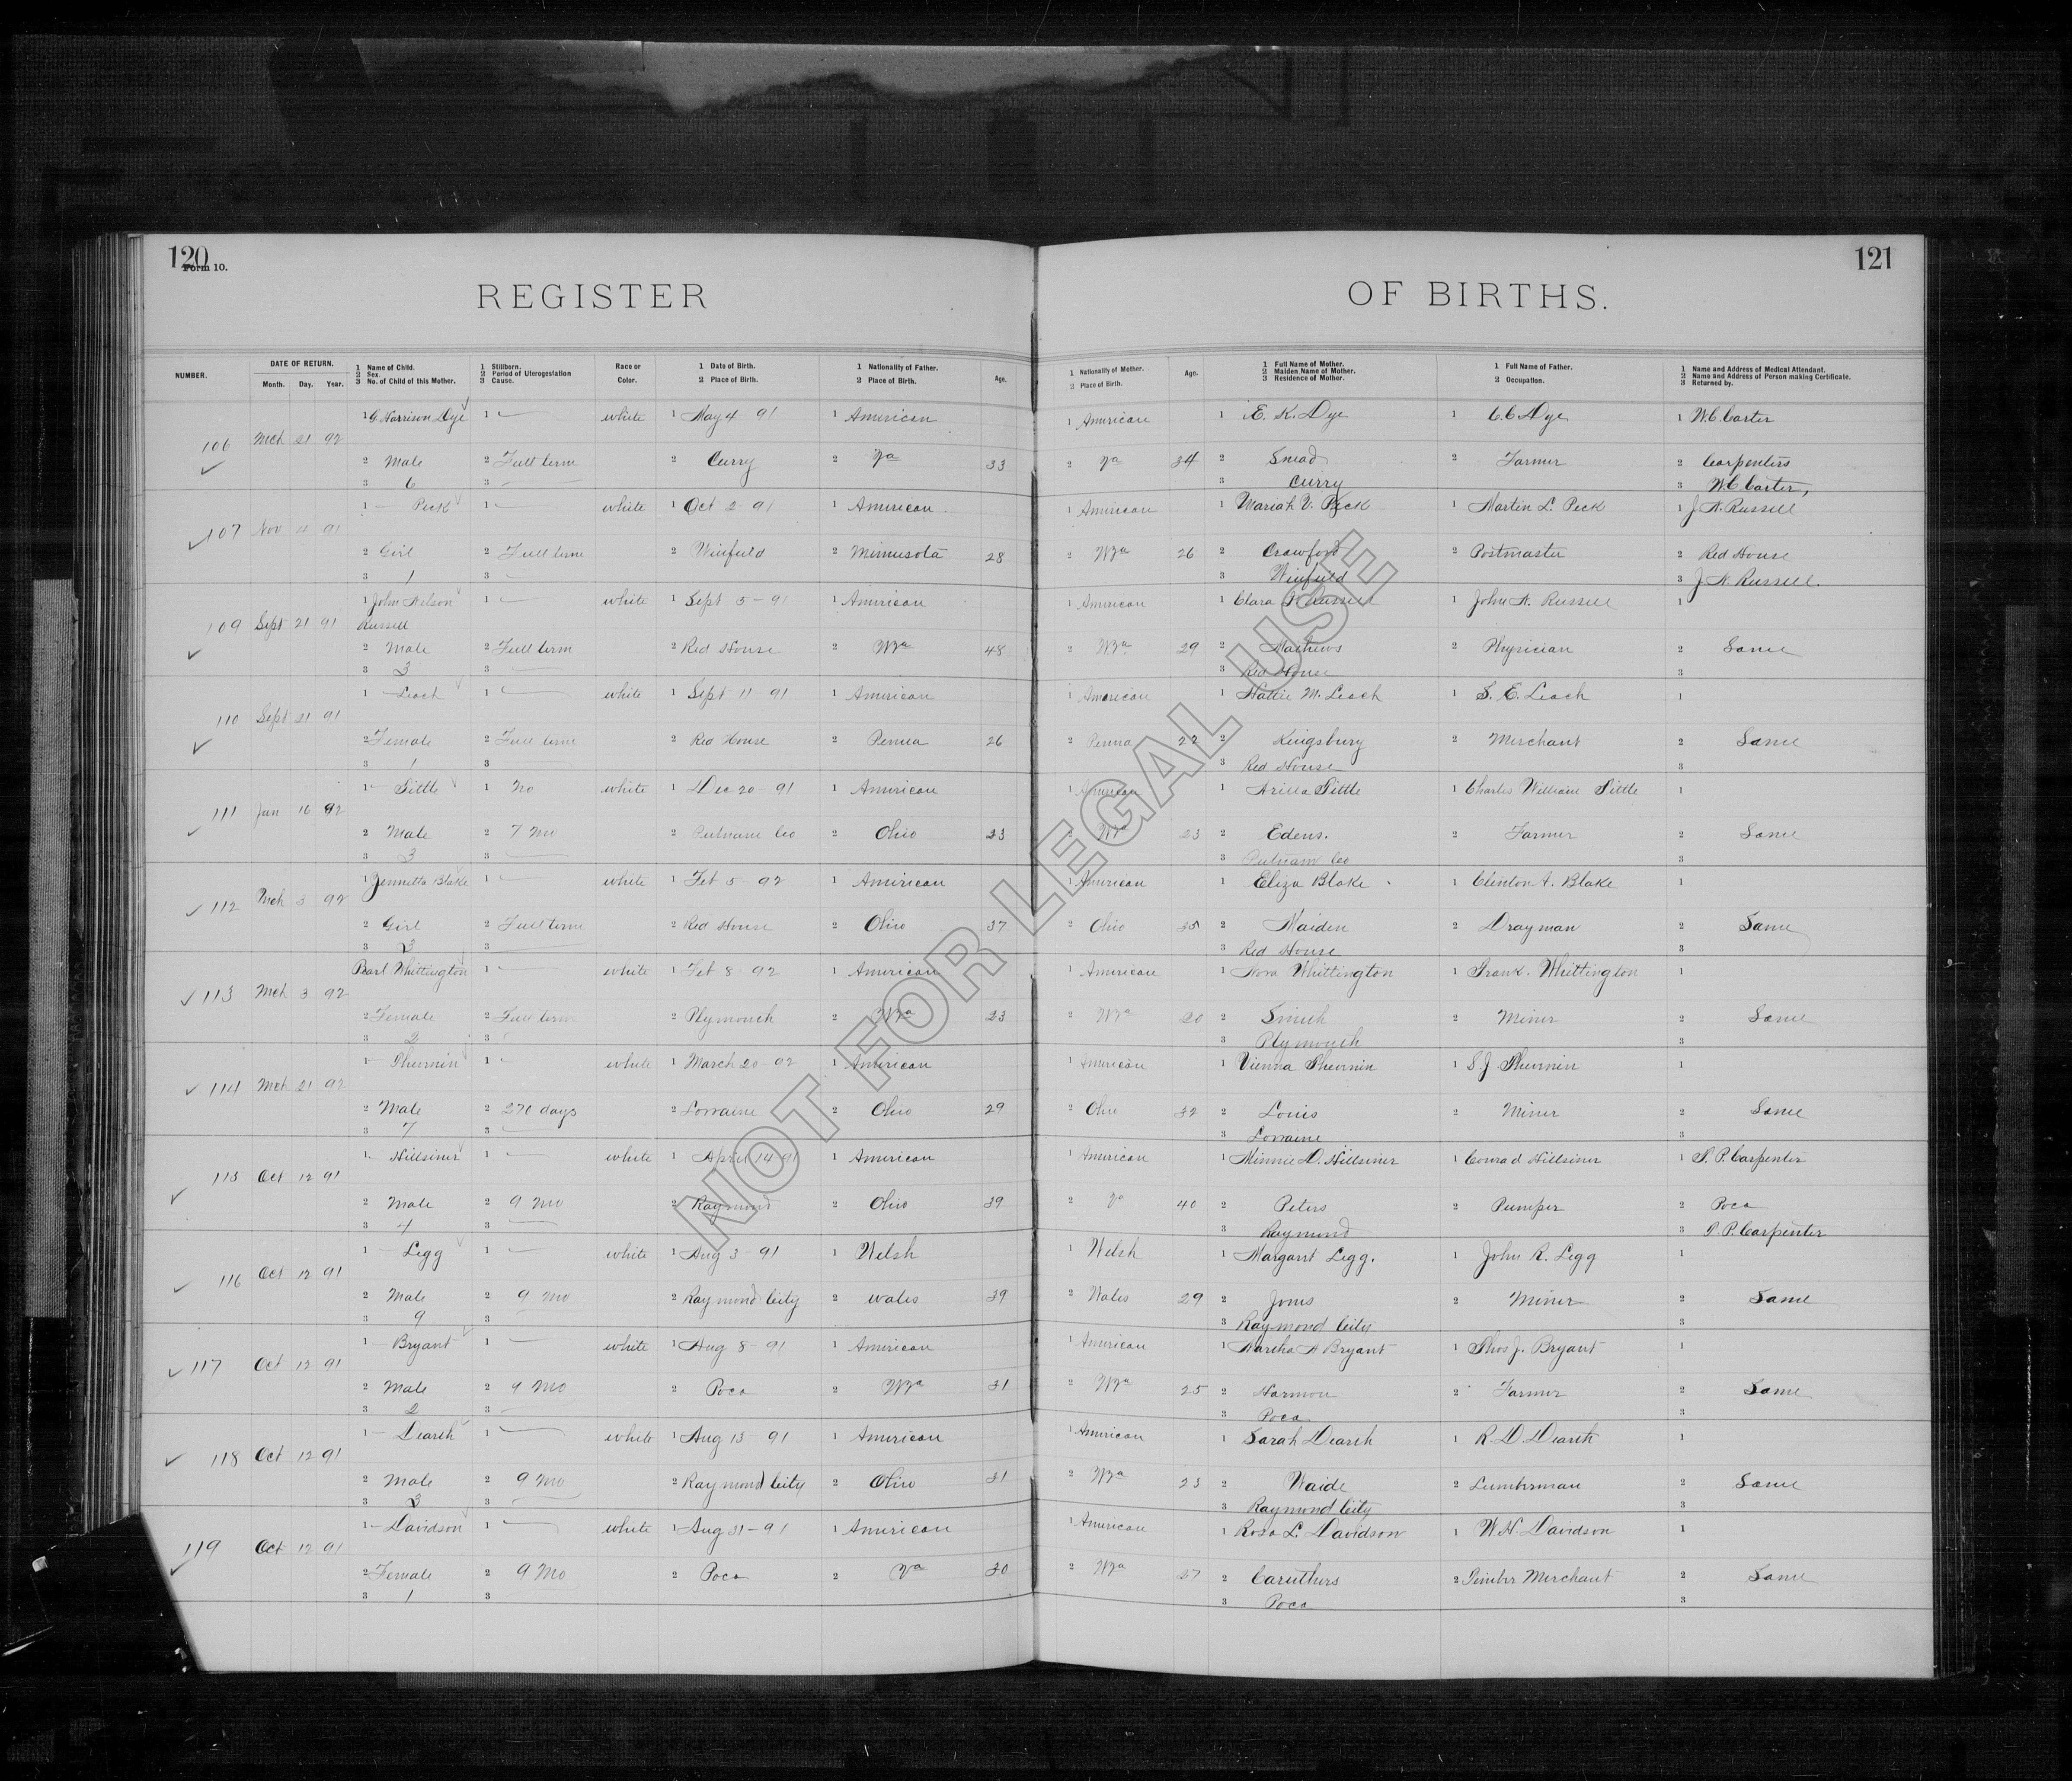 120
Form 10.
REGISTER
OF BIRTHS.
121
NUMBER.
DATE OF RETURN.
Month. Day. Year.
1 Name of Child.
2 Sex.
3 No. of Child of this Mother.
1 Stillborn.
2 Period of Uterogestation
3 Cause.
Race or
Color.
1 Date of Birth.
2 Place of Birth.
1 Nationality of Father.
2 Place of Birth.
Age.
1 Nationality of Mother.
2 Place of Birth.
Age.
1 Full Name of Mother.
2 Maiden Name of Mother.
3 Residence of Mother.
1 Full Name of Father.
2 Occupation.
1 Name and Address of Medical Attendant.
2 Name and Address of Person making Certificate.
3 Returned by.
1 G Harrison Dye 1 white 1 May 4 91 1 American 1 American 1 E. K. Dye 1 C C Dye 1 W. C. Carter
106 Mch 21 92
2 Male 2 Full term 2 Curry 2 Va 33 2 Va 34 2 Snead 2 Farmer 2 Carpenters
3 6 3 3 Curry 3 W C Carter,
1 Peck 1 white 1 Oct 2 91 1 American 1 American 1 Mariah V. Peck 1 Martin L. Peck 1 J. N. Russell
107 Nov 91
2 Girl 2 Full term 2 Winfield 2 Minnesota 28 2 W Va 26 2 Crawford 2 Postmaster 2 Red House
3 1 3 3 Winfield 3 J. N. Russell.
1 John Nelson 1 white 1 Sept 5 - 91 1 American 1 American 1 Clara Russell 1 John N. Russell 1
Russell
109 Sept 21 91
2 Male 2 Full term 2 Red House 2 W Va 48 2 W Va 29 2 Mathews 2 Physician 2 Same
3 3 3 3 Red House 3
1 Leach 1 white 1 Sept 11 91 1 American 1 American 1 Hattie M. Leach 1 S. E. Leach 1
110 Sept 21 91
2 Female 2 Full term 2 Red House 2 Penna 26 2 Penna 22 2 Kingsbury 2 Merchant 2 Same
3 1 3 3 Red House 3
1 Sittle 1 No white 1 Dec 20 91 1 American 1 American 1 Arilla Sittle 1 Charles William Sittle 1
111 Jan 16 92
2 Male 2 7 Mo 2 Putnam Co 2 Ohio 23 2 W Va 23 2 Edens. 2 Farmer 2 Same
3 3 3 3 Putnam Co 3
1 Jennetta Blake 1 white 1 Feb 5 - 92 1 American 1 American 1 Eliza Blake 1 Clinton A. Blake 1
112 Mch 3 92
2 Girl 2 Full term 2 Red House 2 Ohio 37 2 Ohio 35 2 Maiden 2 Drayman 2 Same
3 3 3 3 Red House 3
Pearl Whittington 1 white 1 Feb 8 - 92 1 American 1 American 1 Nora Whittington 1 Frank. Whittington 1
113 Mch 3 92
2 Female 2 Full term 2 Plymouth 2 W Va 23 2 W Va 20 2 Smith 2 Miner 2 Same
3 2 3 3 Plymouth 3
1 Thevenin 1 white 1 March 20 92 1 American 1 American 1 Vienna Thevenin 1 S. J. Thevenin 1
114 Mch 21 92
2 Male 2 270 days 2 Lorraine 2 Ohio 29 2 Ohio 32 2 Louis 2 Miner 2 Same
3 7 3 3 Lorraine 3
1 Hillsiner 1 white 1 April 14 91 1 American 1 American 1 Minnie D. Hillsiner 1 Conrad Hillsiner 1 S. P. Carpenter
115 Oct 12 91
2 Male 2 9 Mo 2 Raymond 2 Ohio 39 2 Va 40 2 Peters 2 Pumper 2 Poca
3 4 3 3 Raymond 3 S. P. Carpenter
1 Legg 1 white 1 Aug 3 - 91 1 Welsh 1 Welsh 1 Margaret Legg. 1 John R. Legg 1
116 Oct 12 91
2 Male 2 9 Mo 2 Raymond City 2 Wales 39 2 Wales 29 2 Jones 2 Miner 2 Same
3 9 3 Raymond City 3
1 Bryant 1 white 1 Aug 8 - 91 1 American 1 American 1 Martha A Bryant 1 Thos J. Bryant 1
117 Oct 12 91
2 Male 2 9 Mo 2 Poca 2 W Va 31 2 W Va 25 2 Harmon 2 Farmer 2 Same
3 2 3 3 Poca 3
1 Dearth 1 white 1 Aug 13 - 91 1 American 1 American 1 Sarah Dearth 1 R. D. Dearth 1
118 Oct 12 91
2 Male 2 9 Mo 2 Raymond City 2 Ohio 31 2 W Va 23 2 Waide 2 Lumberman 2 Same
3 3 3 3 Raymond City 3
1 Davidson 1 white 1 Aug 31 - 91 1 American 1 American 1 Rosa L. Davidson 1 W. H. Davidson 1
119 Oct 12 91
2 Female 2 9 Mo 2 Poca 2 Va 30 2 W Va 27 2 Caruthers 2 Timber Merchant 2 Same
3 1 3 3 Poca 3
NOT FOR LEGAL USE